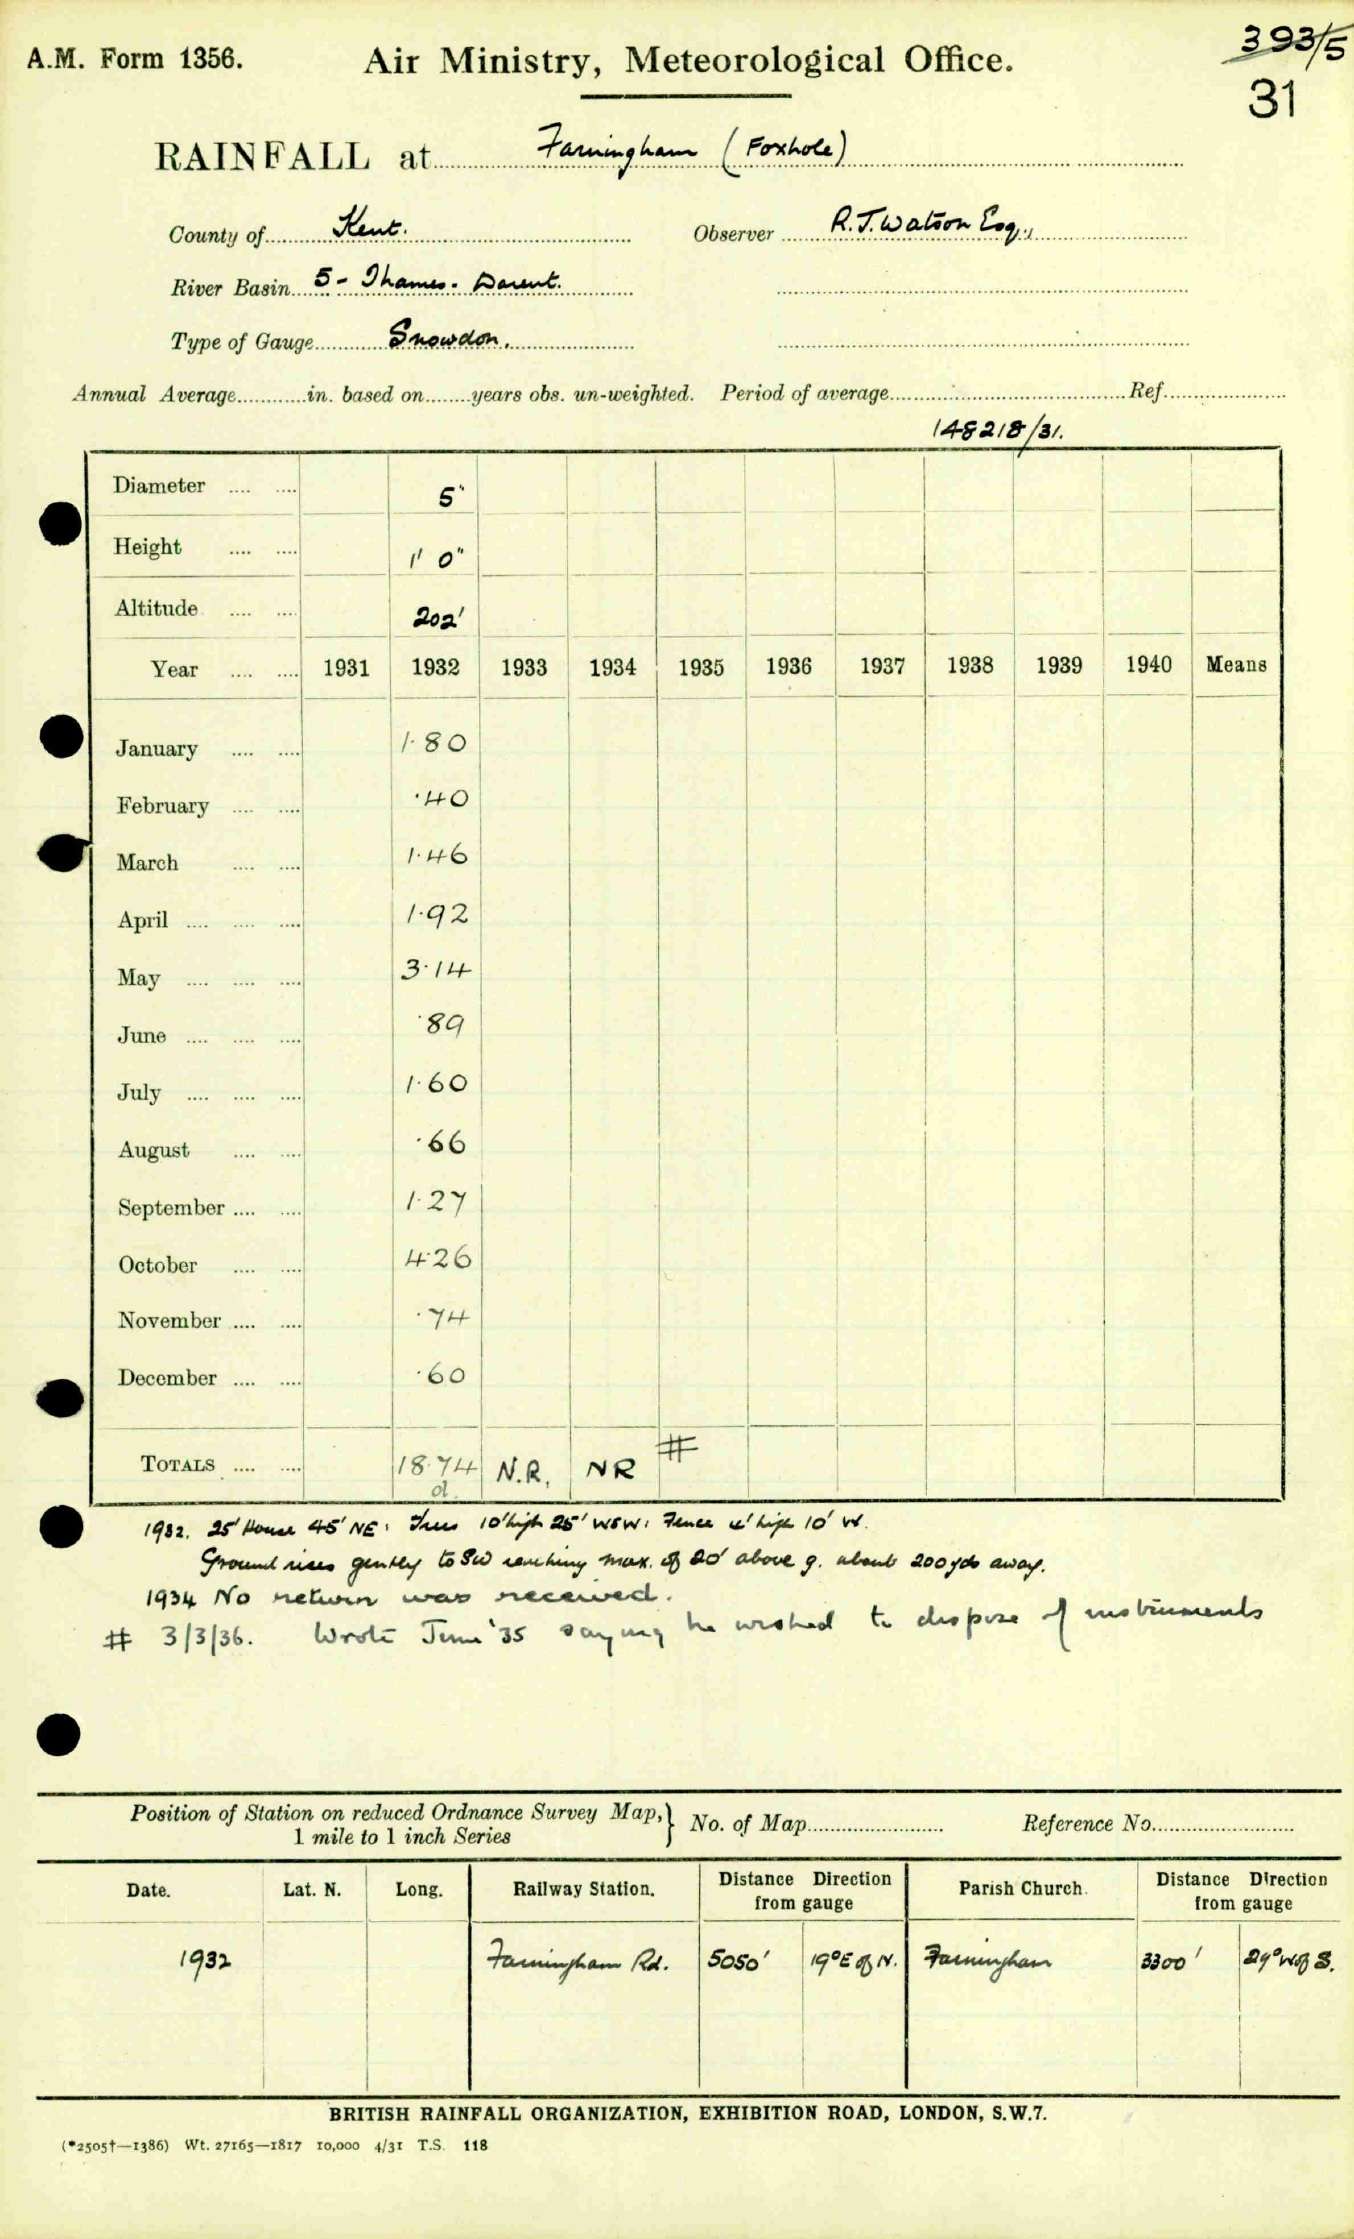 A.M. Form 1356. Air Ministry, Meteorological Office. 393/5
31
RAINFALL at Farningham (Foxhole)
County of Kent. Observer R.T. Watson Esq.,
River Basin 5 - Thames - Darent.
Type of Gauge Snowdon.
Annual Average in. based on years obs. un-weighted. Period of average Ref.
148218/31.
Diameter 5"
Height 1' 0"
Altitude 202'
Year 1931 1932 1933 1934 1935 1936 1937 1938 1939 1940 Means
January 1.80
February .40
March 1.46
April 1.92
May 3.14
June .89
July 1.60
August .66
September 1.27
October 4.26
November .74
December .60
TOTALS 18.74 N.R. NR #
d
1932. 25' House 45' NE: Trees 10' high 25' WSW: Fence 4' high 10' W.
Ground rises gently to SW reaching max. of 20' above g. about 200 yds away.
1934 No return was received.
# 3/3/36. Wrote June '35 saying he wished to dispose of instruments
Position of Station on reduced Ordnance Survey Map, } No. of Map Reference No.
1 mile to 1 inch Series
Date. Lat. N. Long. Railway Station. Distance Direction from gauge Parish Church. Distance Direction from gauge
1932 Farningham Rd. 5050' 19° E of N. Farningham 3300' 29° W of S.
BRITISH RAINFALL ORGANIZATION, EXHIBITION ROAD, LONDON, S.W.7.
(*2505†—1386) Wt. 27165—1817 10,000 4/31 T.S. 118